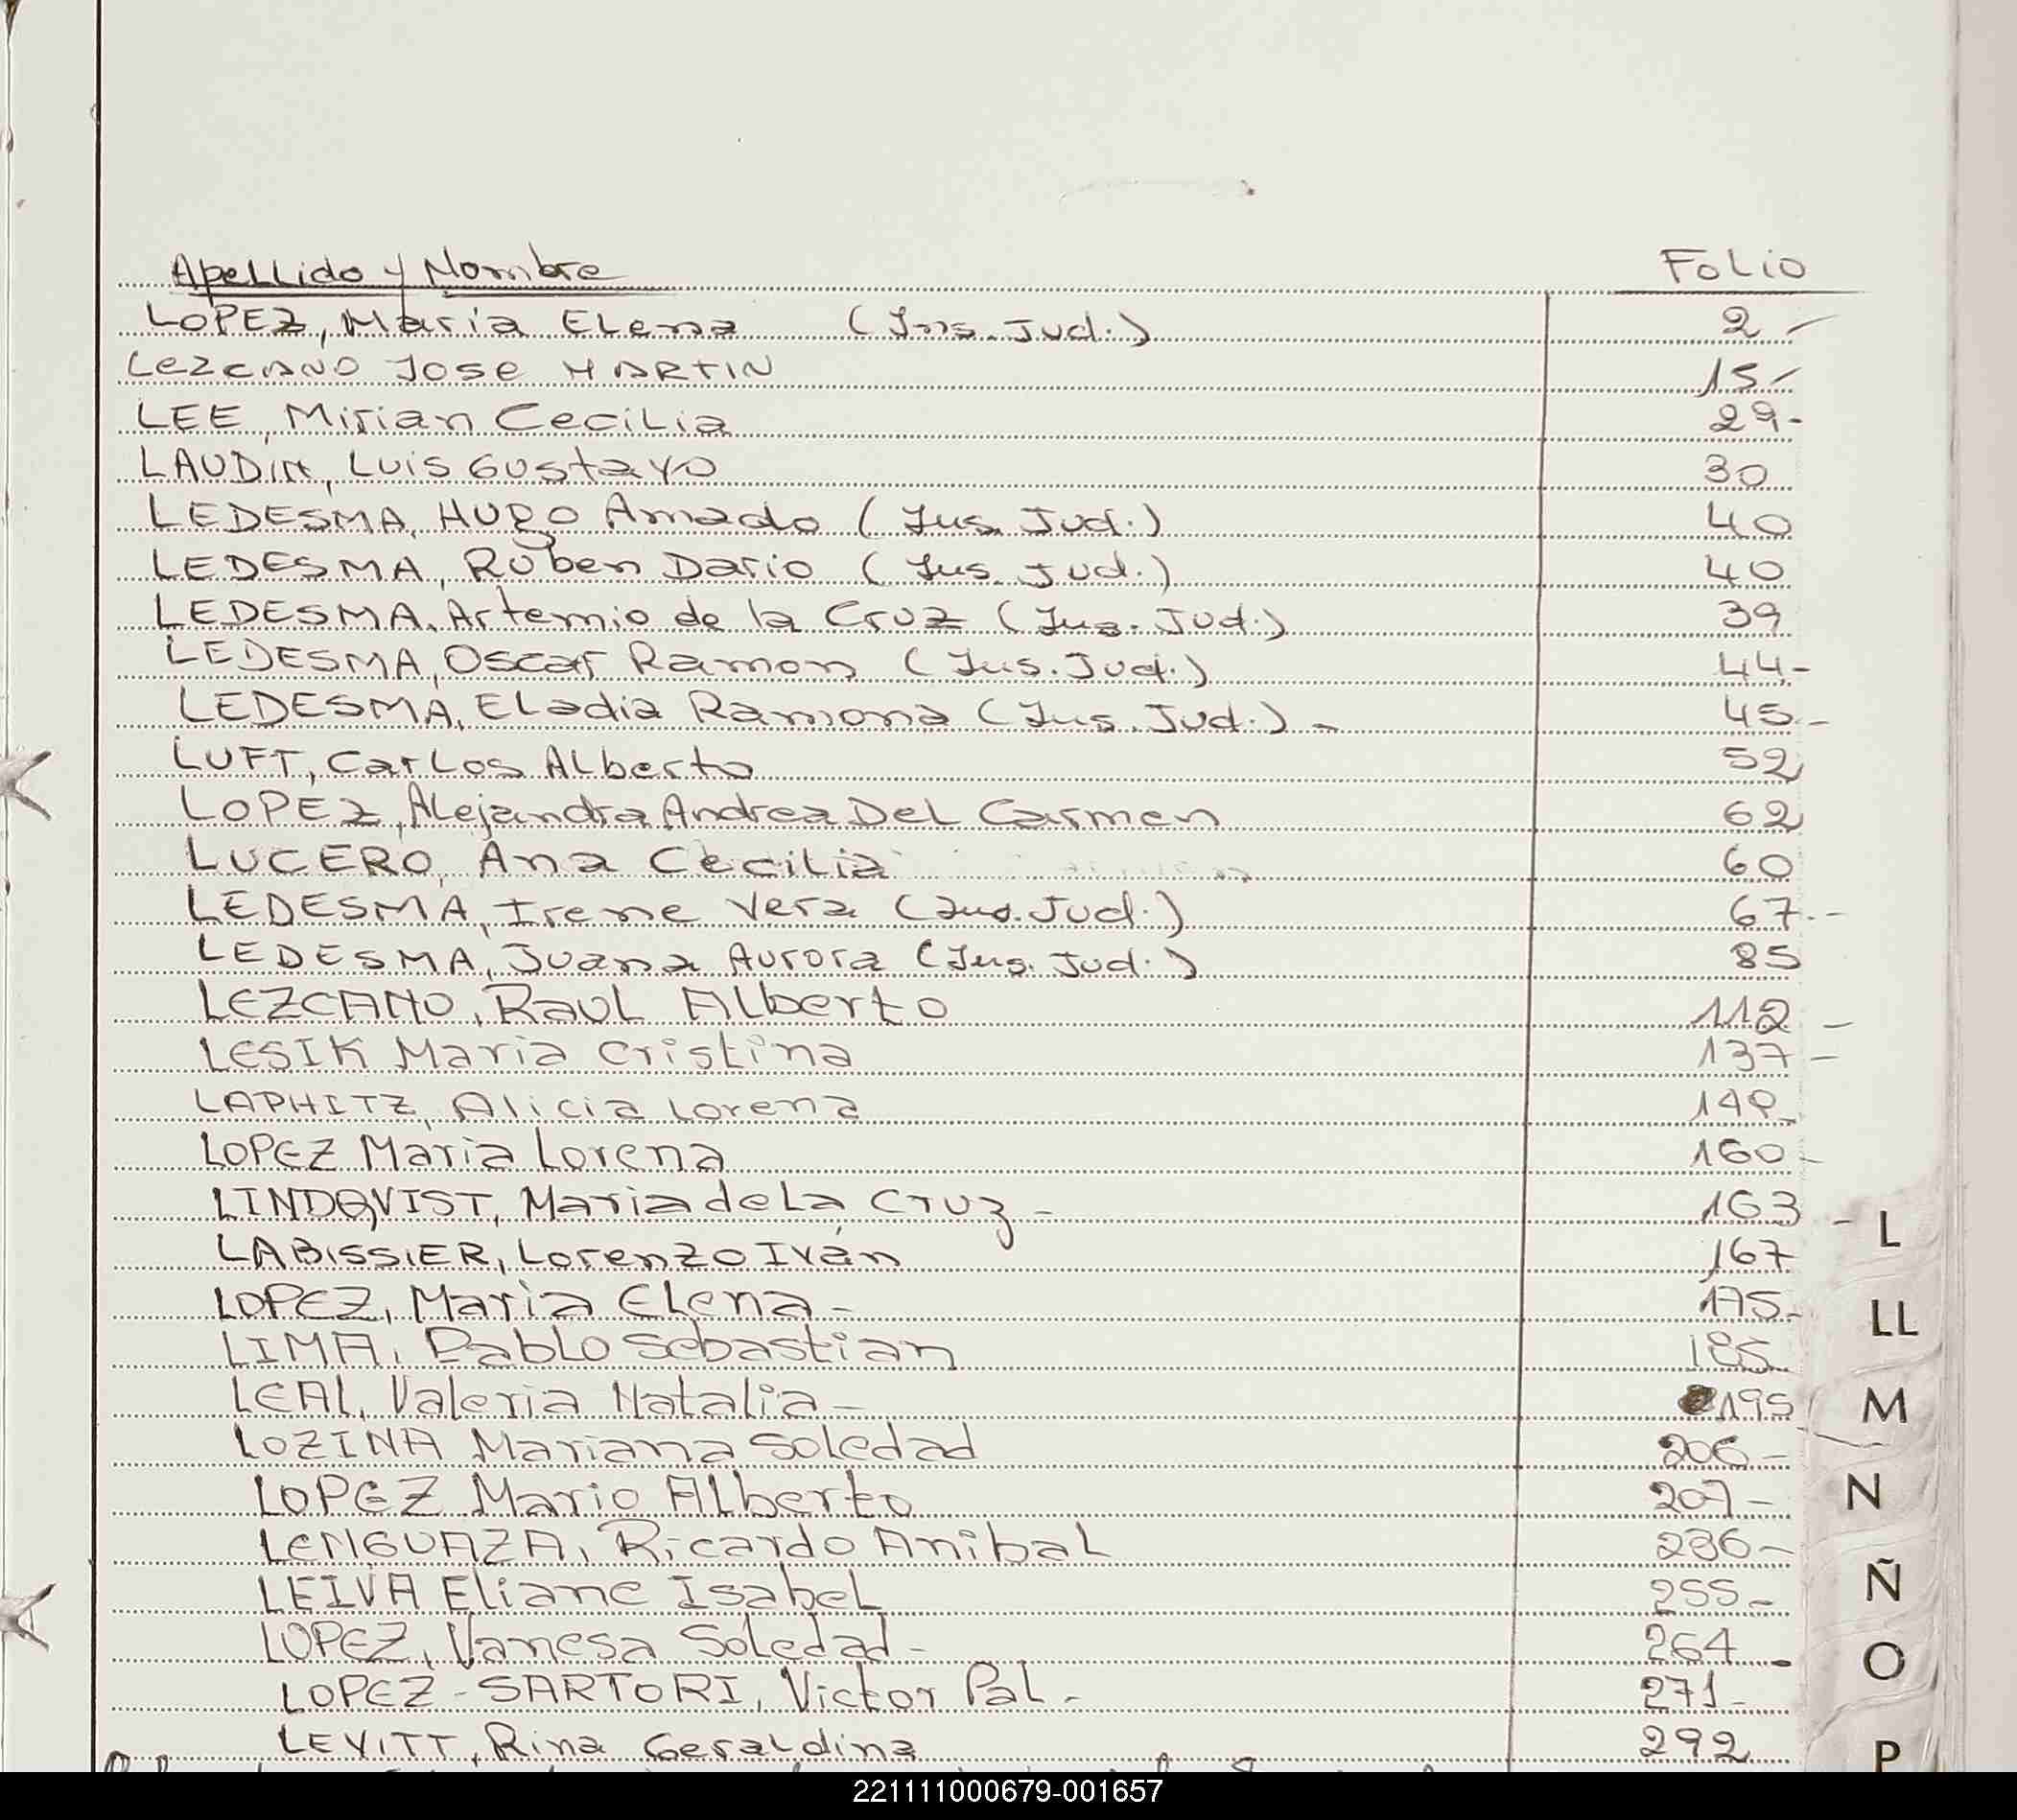 Apellido y Nombre Folio
LOPEZ, Maria Elena (Ins. Jud.) 2
LEZCANO JOSE MARTIN 15
LEE, Mirian Cecilia 29-
LAUDIN, Luis Gustavo 30
LEDESMA, Hugo Amado (Ins. Jud.) 40
LEDESMA, Ruben Dario (Ins. Jud.) 40
LEDESMA, Artemio de la Cruz (Ins. Jud.) 39
LEDESMA, Oscar Ramon (Ins. Jud.) 44-
LEDESMA, Eladia Ramona (Ins. Jud.) - 45-
LUFT, Carlos Alberto 52
LOPEZ, Alejandra Andrea Del Carmen 62
LUCERO, Ana Cecilia 60
LEDESMA, Irene Vera (Ins. Jud.) 67--
LEDESMA, Juana Aurora (Ins. Jud.) 85
LEZCANO, Raul Alberto 112 -
LESIK Maria Cristina 137 -
LAPHITZ, Alicia Lorena
LOPEZ Maria Lorena 160-
LINDQVIST, Maria de La Cruz - 163 -
LABISSIER, Lorenzo Iván 167
LOPEZ, Maria Elena - 175-
LIMA, Pablo Sebastian 185
LEAL, Valeria Natalia - 195
LOZINA Mariana Soledad 206-
LOPEZ Mario Alberto 207-
LENGUAZA, Ricardo Anibal 236-
LEIVA Eliane Isabel 255-
LOPEZ, Vanesa Soledad - 264 -
LOPEZ-SARTORI, Victor Pal - 271-
LEVITT, Rina Geraldina 292
L
LL
M
N
Ñ
O
P
221111000679-001657